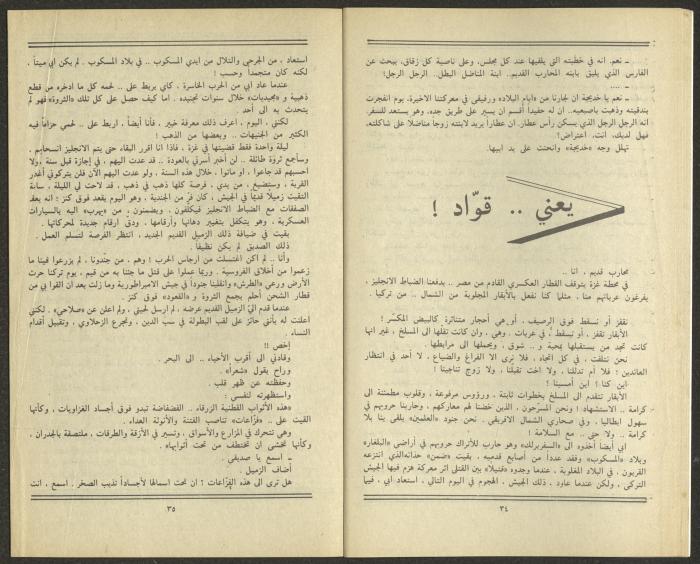 ـ نعم. انه في خطبته التي يلقيها عند كل مجلس، وعلى ناصية كل زقاق، يبحث عن
الفارس الذي يليق بابنه المحارب القديم.. ابنة المناضل البطل.. الرجل الرجل!
ـ ....
ـ نعم يا خديجة ان لجارنا من «ايام البلاد» ورفيقي في معركتنا الاخيرة، يوم انفجرت
بندقيته وذهبت باصبعيه.. ان له حفيداً أقسم ان يسير على طريق جده، وهو يستعد للسفر.
انه الرجل الرجل الذي يسكن رأس عطار. ان عطاراً يريد لابنته زوجاً مناضلاً على شاكلته.
فهل لديك، انت، اعتراض؟
تهلل وجه «خديجة» وانحنت على يد ابيها.
يعني .. قوّاد !
محارب قديم ، انا ..
في محطة غزة يتوقف القطار العسكري القادم من مصر .. يدفعنا الضباط الانجليز ،
يفرغون عرباتهم منا ، مثلما كنا نفعل بالأبقار المجلوبة من الشمال .. من تركيا .
نقفز أو نسقط فوق الرصيف ، أو هي أحجار متناثرة كالبيض المكسّر !
الأبقار تقفز ، أو تسقط ، في عربات . وهي ، وان كانت تنقلها الى المسلخ ، غير انها
كانت تجد من يستقبلها بمحبة و .. شوق ، ويحملها الى مرابطها .
نحن نتلفت ، في كل اتجاه ، فلا نرى الا الفراغ والضياع . لا أحد في انتظار
العائدين ! فلا أم تدللنا ، ولا اخت تقبلنا ، ولا زوج تناجينا !
اين كنا ! اين أمسينا !
الأبقار تتقدم الى المسلخ بخطوات ثابتة ، ورؤوس مرفوعة ، وقلوب مطمئنة الى
كرامة .. الاستشهاد ! ونحن المسرّحون ، الذين خضنا لهم معاركهم ، وحاربنا حروبهم في
سهول ايطاليا ، وفي صحاري الشمال الافريقي . نحن جنود «العلمين» يلقى بنا بلا
كرامة .. ولا حتى .. مع السلامة !
ابي أيضا أخذوه الى «السفربرلك» وهو حارب للأتراك حروبهم في أراضي «البلغار»
وبلاد «المسكوب» وفقد عدداً من أصابع قدميه ، بقيت «ضمن» حذائه الذي انتزعه
القريون . في البلاد المغلوبة ، عندما وجدوه «قتيلا» بين القتلى اثر معركة هزم فيها الجيش
التركي ، ولكن عندما عاود ، ذلك الجيش ، الهجوم في اليوم التالي ، استعاد أبي ، فيما
٣٤
استعاد ، من الجرحى والتلال من أيدي المسكوب .. في بلاد المسكوب . لم يكن أبي ميتاً ،
لكنه كان متجمداً وحسب !
عندما عاد أبي من الحرب الخاسرة ، كاي يربط على .. لحمه كل ما ادخره من قطع
ذهبية و «مجيديات» خلال سنوات تجنيده . اما كيف حصل على كل تلك «الثروة» فهو لم
يتحدث به الى أحد .
لكني ، اليوم ، أعرف ذلك معرفة خبير . فأنا أيضاً ، اربط على .. لحمي حزاماً فيه
الكثير من الجنيهات .. وبعضها من الذهب !
ليلة واحدة فقط قضيتها في غزة ، فاذا انا اقرر البقاء حتى يتم الانجليز انسحابهم ،
وسأجمع ثروة طائلة .. لن أخبر أسرتي بالعودة .. قد عدت اليهم ، في إجازة قبل سنة .ولا
احسبهم قد جاعوا ، او ماتوا ، خلال هذه السنة . ولو عدت اليهم الآن فلن يتركوني أغادر
القرية ، وستضيع ، من يدي ، فرصة كلها ذهب في ذهب ، قد لاحت لي الليلة ، ساعة
التقيت زميلا قديماً في الجيش ، كان فر من الجندية . وهو اليوم يقعد فوق كنز : انه يعقد
الصفقات مع الضباط الانجليز فيكلفون ، ويضمنون ، من «يهرب» اليه بالسيارات
العسكرية ، وهو يتكفل بتغيير دهانها وأرقامها ، ودق أرقام جديدة لمحركاتها .
بقيت في ضيافة ذلك الزميل القديم الجديد ، انتظر الفرصة لتسلم العمل .
ذلك الصديق لم يكن نظيفاً .
وأنا .. لم أكن اغتسلت من ارجاس الحرب ! وهم ، من جندونا ، لم يزرعوا فينا ما
زعموا من أخلاق الفروسية . وربما عملوا على قتل ما جئنا به من قيم ، يوم تركنا حرث
الأرض ورعي «الطرش» وانقلبنا جنوداً في جيش الامبراطورية وما زلت بعد ان القوا بي من
قطار الشحن أحلم بجمع الثروة و «القعود» فوق كنز .
عندما قدم اليّ الزميل القديم عرضه ، لم ارسل لحيتي . ولم اعلن عن «صلاحي» . لكني
اعلنت له بأنني حائز على لقب البطولة في سب الدين ، وتجرع الزحلاوي ، وتقبيل أقدام
النساء .
إخص !!
وقادني الى أقرب الأحياء .. الى البحر .
وراح يقول «شعراً» .
وحفظته عن ظهر قلب .
واستظهرته لنفسي :
«هذه الأثواب القطنية الزرقاء .. الفضفاضة تبدو فوق أجساد الغزاويات ، وكأنها
القيت على .. «فزّاعات» تناصب الفتنة والأنوثة العداء .
وهي تتحرك في المزارع والأسواق ، وتسير في الأزقة والطرقات ، ملتصقة بالجدران ،
وكأنها تخشى ان تختطف من تحت أثوابها» .
ـ اسمع يا صديقي .
أضاف الزميل .
هل ترى الى هذه الفزّاعات ؟ ان تحت اسمالها لأجساداً تذيب الصخر . اسمع ، انت
٣٥